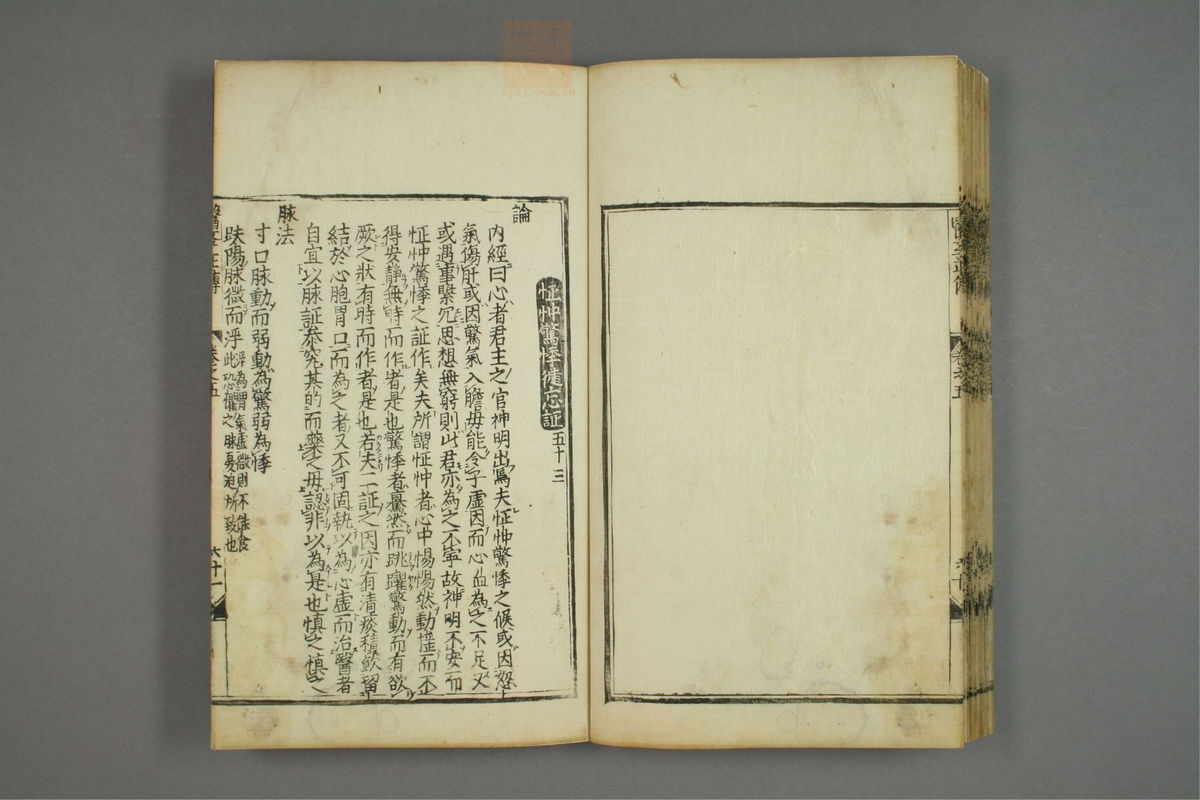 卷之五
怔忡驚悸健忘証 五十三
論
內經曰心者君主之官神明出焉夫怔忡驚悸之候或因怒
氣傷肝或因驚氣入膽母能令子虛因而心血為之不足又
或遇事繁冗思想無窮則此君亦為之不寧故神明不安而
怔忡驚悸之証作矣夫所謂怔忡者心中惕惕然動搖而不
得安靜無時而作者是也驚悸者驀然而跳躍驚動而有欲
厥之狀有時而作者是也若夫二証之因亦有清痰積飲留
結於心胞胃口而為之者又不可固執以為心虛而治醫者
自宜以脉証參究其的而藥之毋認非以為是也慎之慎之
脉法
寸口脉動而弱動為驚弱為悸
趺陽脉微而浮 浮為胃氣虛微則不能食
此恐懼之脉憂迫所致也
卷之五
六十一
zycj.com.cn